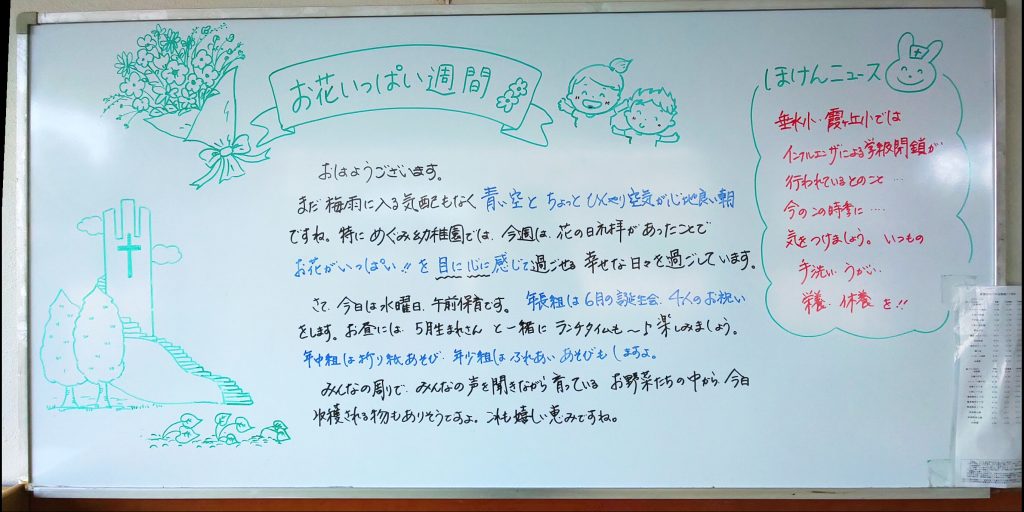 お花いっぱい週間
おはようございます。
まだ梅雨に入る気配もなく 青い空と ちょっと ひんやり空気が心地良い朝
ですね。特に めぐみ幼稚園では、今週は、花の日礼拝があったことで
お花がいっぱい!! を 目に心に感じて過ごせる 幸せな日々を過ごしています。
さて、今日は水曜日、午前保育です。 年長組は6月の誕生会、4人のお祝い
をします。お昼には、5月生まれさん と一緒に ランチタイムも〜♪楽しみましょう。
年中組は折り紙あそび、年少組はふれあい あそびもしますよ。
みんなの周りで、みんなの声を聞きながら育っている お野菜たちの中から 今日
収穫される物もありそうですよ。これも嬉しい恵みですね。
ほけんニュース
垂水小・霞ヶ丘小では
インフルエンザによる学級閉鎖が
行われているとのこと…
今のこの時季に‥‥
気をつけましょう。いつもの
手洗い・うがい、
栄養、休養 を!!